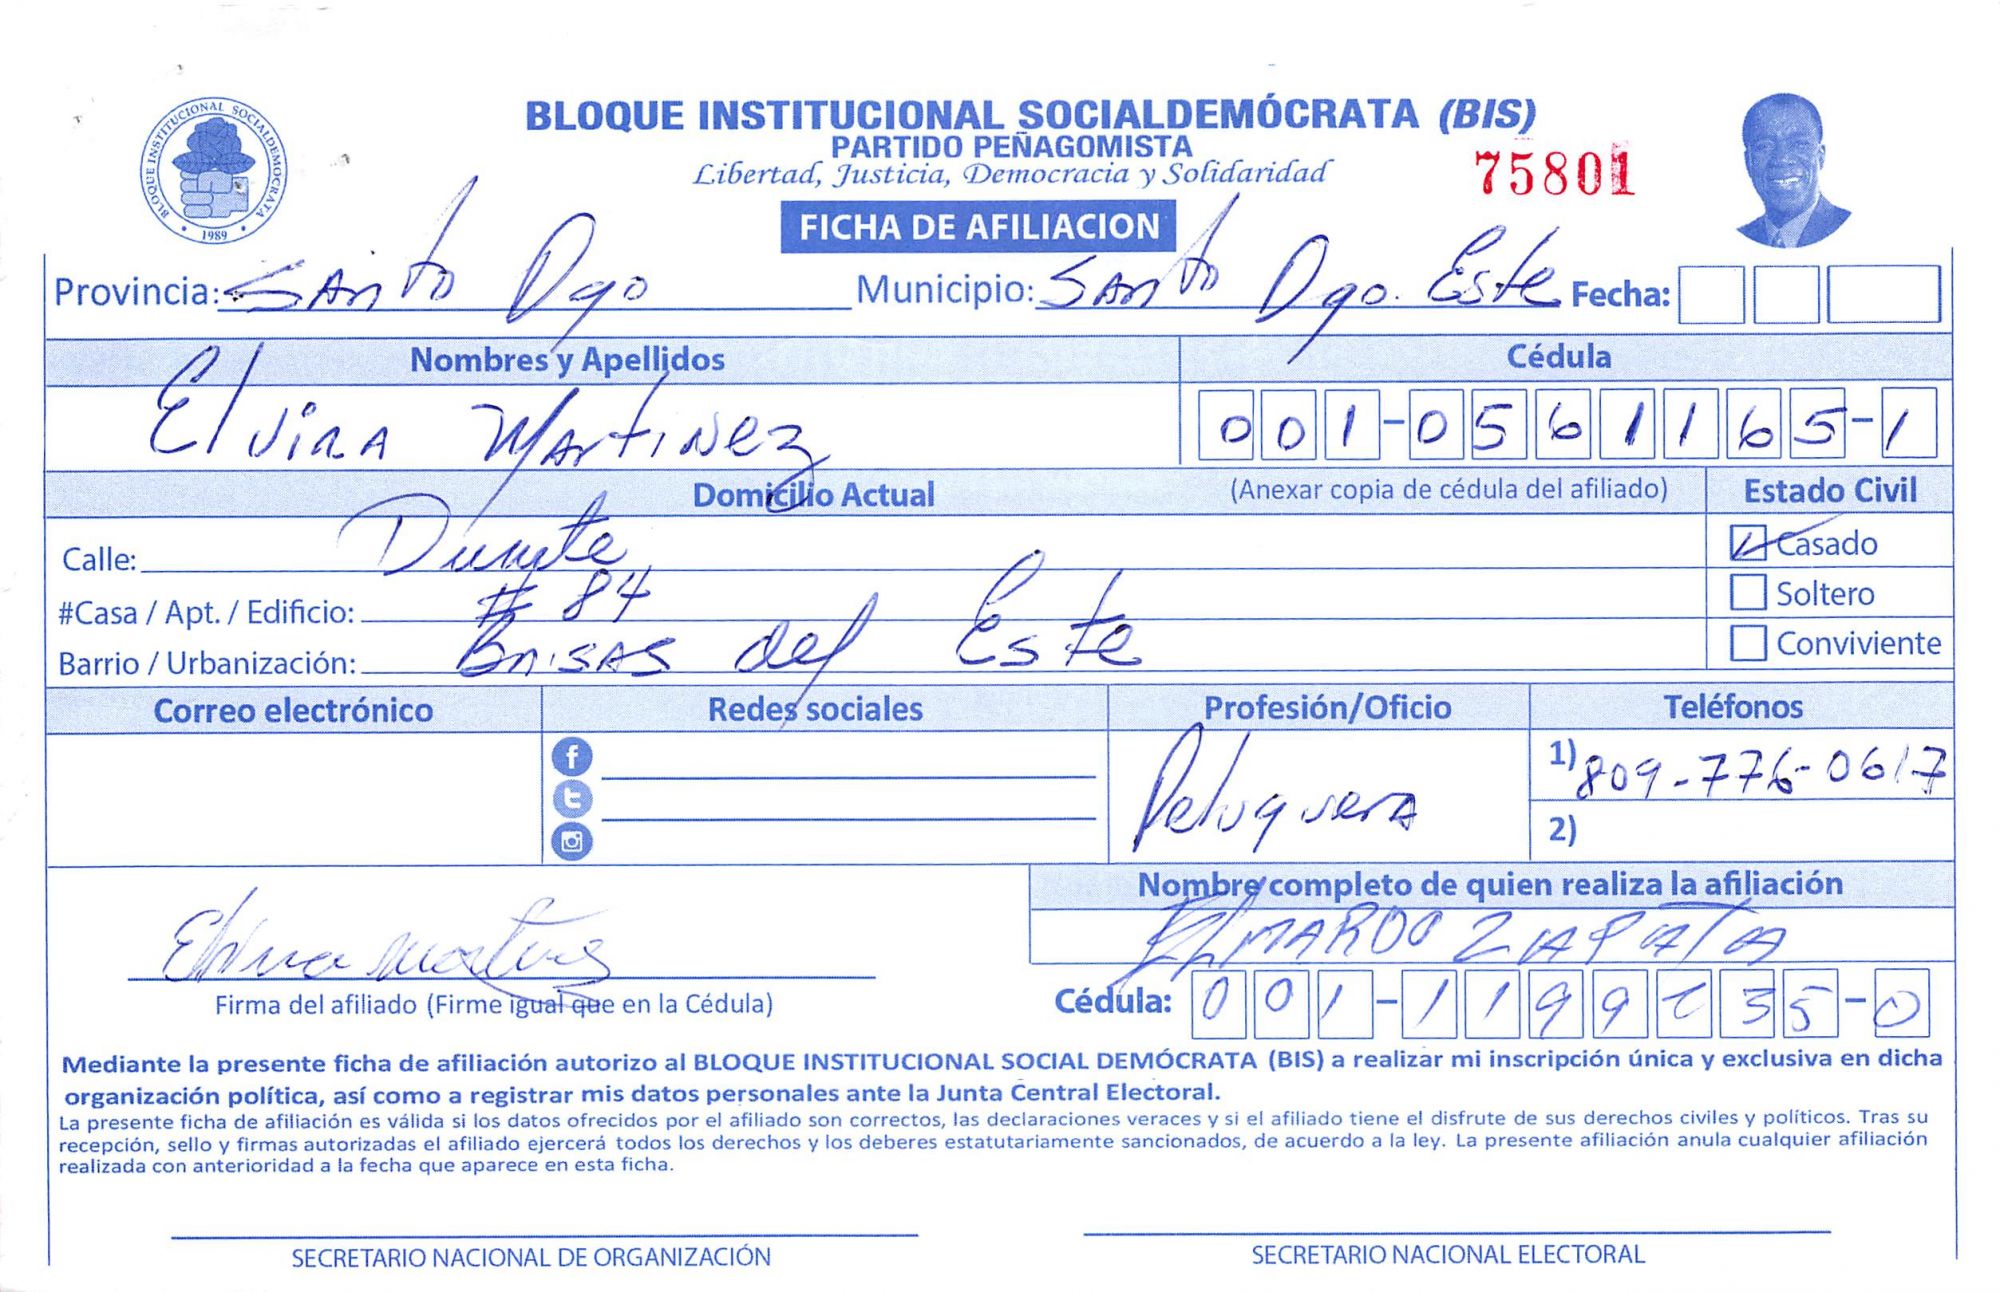 BLOQUE INSTITUCIONAL SOCIALDEMOCRATA
1989
BLOQUE INSTITUCIONAL SOCIALDEMÓCRATA (BIS)
PARTIDO PEÑAGOMISTA
Libertad, Justicia, Democracia y Solidaridad
75801
FICHA DE AFILIACION
Provincia: Santo Dgo Municipio: Santo Dgo. Este Fecha:
Nombres y Apellidos Cédula
Elvira Martinez 001-0561165-1
Domicilio Actual (Anexar copia de cédula del afiliado) Estado Civil
Calle: Duarte Casado
#Casa / Apt. / Edificio: # 84 Soltero
Barrio / Urbanización: Brisas del Este Conviviente
Correo electrónico Redes sociales Profesión/Oficio Teléfonos
Peluquera 1) 809-776-0617
2)
Nombre completo de quien realiza la afiliación
ZAPATA
Elvira Martinez
Firma del afiliado (Firme igual que en la Cédula) Cédula: 001-1199235-0
Mediante la presente ficha de afiliación autorizo al BLOQUE INSTITUCIONAL SOCIAL DEMÓCRATA (BIS) a realizar mi inscripción única y exclusiva en dicha
organización política, así como a registrar mis datos personales ante la Junta Central Electoral.
La presente ficha de afiliación es válida si los datos ofrecidos por el afiliado son correctos, las declaraciones veraces y si el afiliado tiene el disfrute de sus derechos civiles y políticos. Tras su
recepción, sello y firmas autorizadas el afiliado ejercerá todos los derechos y los deberes estatutariamente sancionados, de acuerdo a la ley. La presente afiliación anula cualquier afiliación
realizada con anterioridad a la fecha que aparece en esta ficha.
SECRETARIO NACIONAL DE ORGANIZACIÓN SECRETARIO NACIONAL ELECTORAL